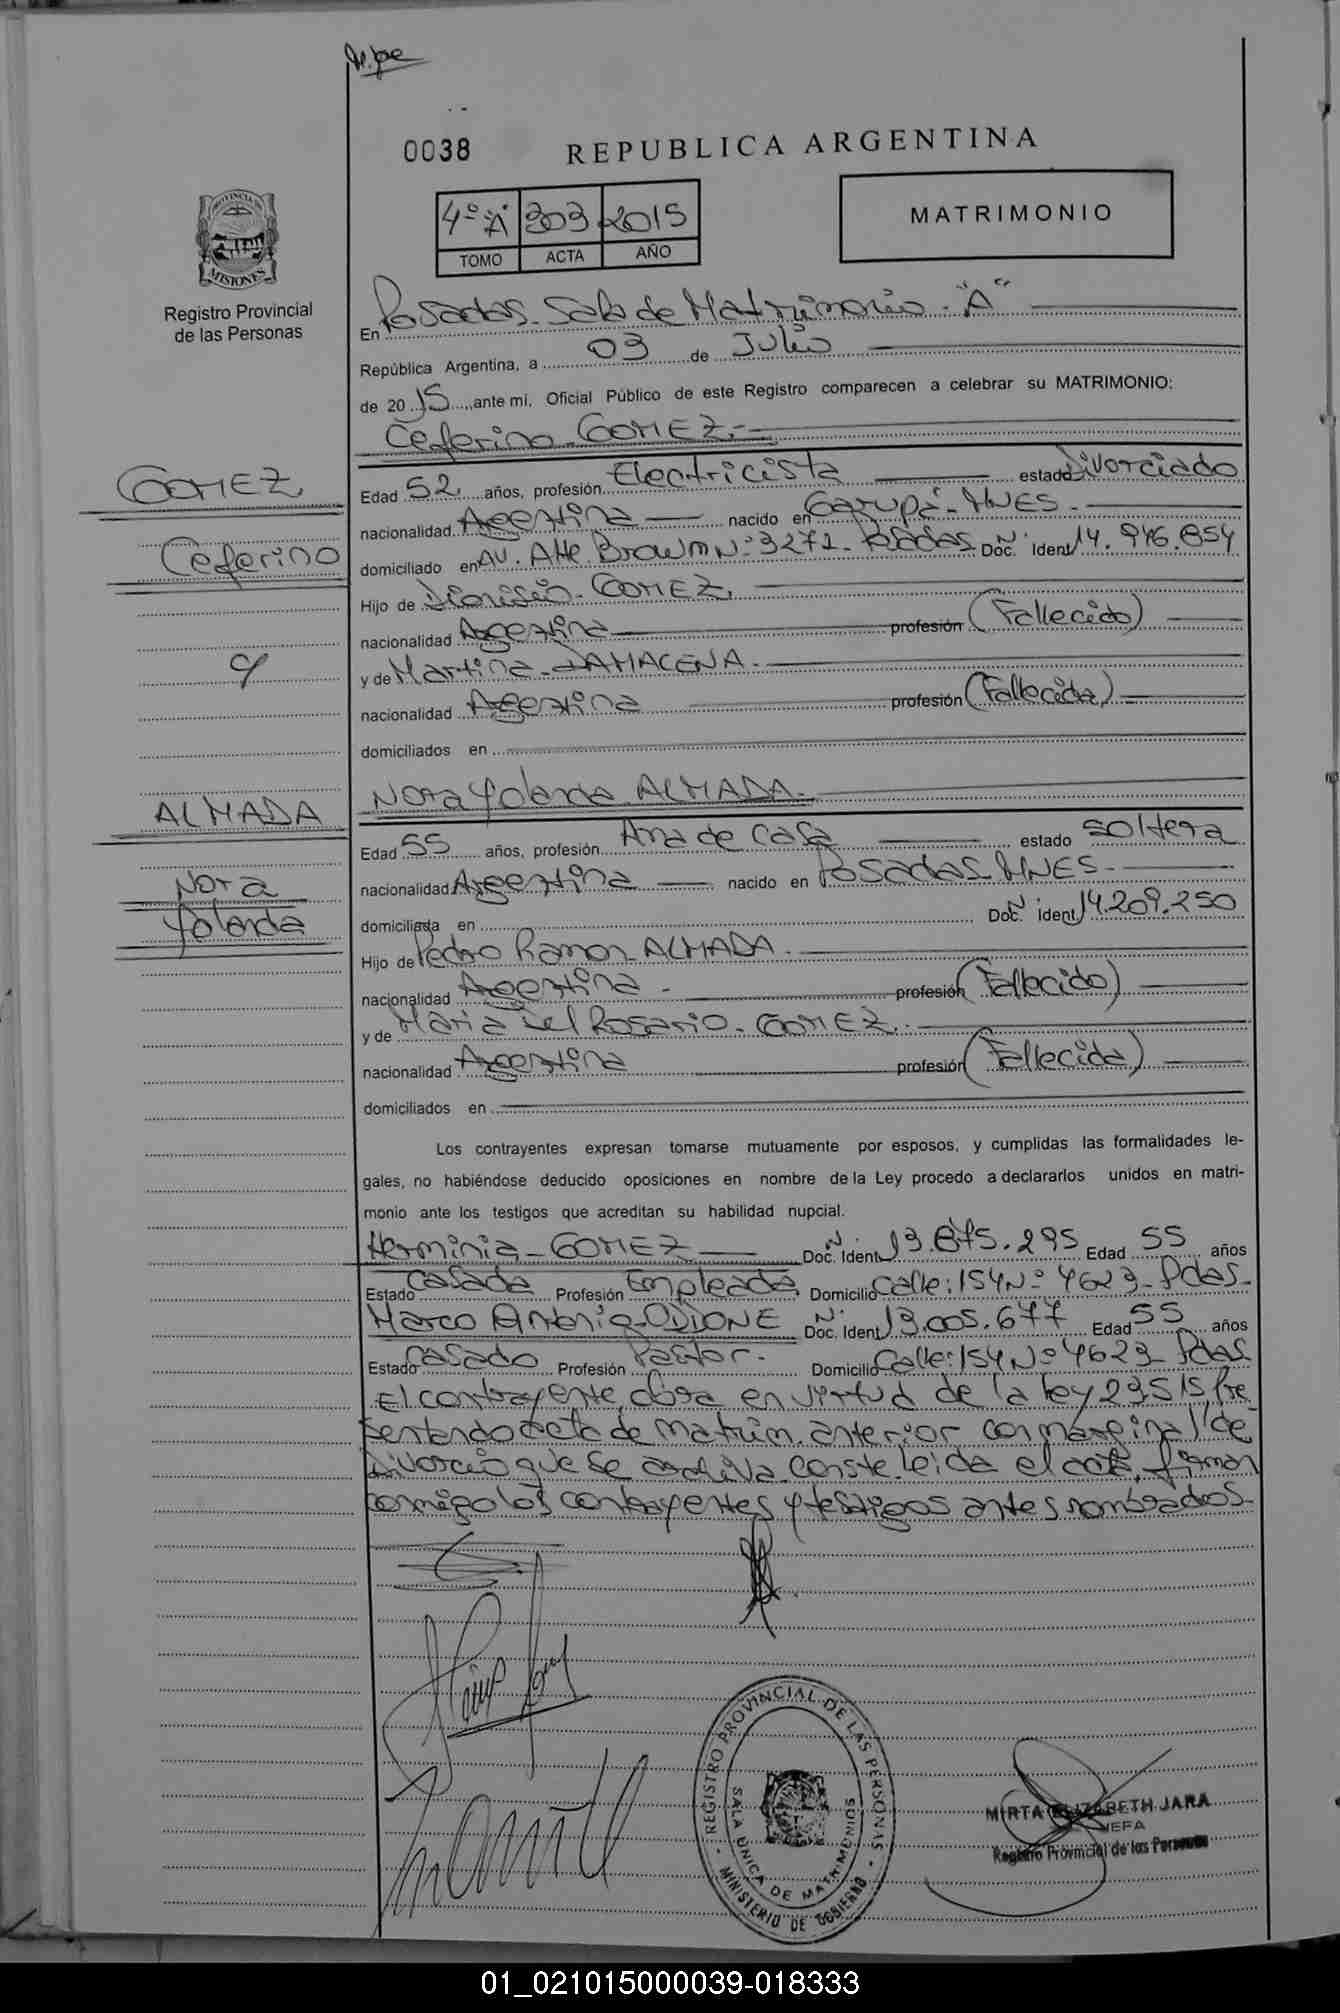 0038 REPUBLICA ARGENTINA
PROVINCIA DE
MISIONES
Registro Provincial
de las Personas
4º "A" 303 2015
TOMO ACTA AÑO
MATRIMONIO
En Posadas - Sala de Matrimonio - "A"
República Argentina, a 03 de Julio
de 2015, ante mi, Oficial Público de este Registro comparecen a celebrar su MATRIMONIO:
Ceferino GOMEZ.-
GOMEZ
Ceferino
y
ALMADA
Nora
Yolanda
Edad 52 años, profesión Electricista estado Divorciado
nacionalidad Argentina nacido en Garupá - MNES.
domiciliado en AV. Alte. Brown Nº 3272 - Posadas Doc. Nº Ident. 14.946.854
Hijo de Dionisio GOMEZ.
nacionalidad Argentina profesión (Fallecido)
y de Martina DAMACENA.
nacionalidad Argentina profesión (Fallecida)
domiciliados en
Nora Yolanda ALMADA.
Edad 55 años, profesión Ama de Casa estado Soltera
nacionalidad Argentina nacido en Posadas MNES.
domiciliada en Doc. Nº Ident. 14.209.250
Hijo de Pedro Ramon ALMADA.
nacionalidad Argentina profesión (Fallecido)
y de Maria del Rosario GOMEZ.
nacionalidad Argentina profesión (Fallecida)
domiciliados en
Los contrayentes expresan tomarse mutuamente por esposos, y cumplidas las formalidades le-
gales, no habiéndose deducido oposiciones en nombre de la Ley procedo a declararlos unidos en matri-
monio ante los testigos que acreditan su habilidad nupcial.
Herminia GOMEZ Doc. Nº Ident. 13.875.295 Edad 55 años
Estado Casada Profesión Empleada Domicilio Calle: 154 Nº 4623 - Pdas.
Marco Antonio ODIONE Doc. Nº Ident. 13.005.677 Edad 55 años
Estado Casado Profesión Pastor. Domicilio Calle: 154 Nº 4623 Pdas
El contrayente obra en virtud de la ley 23515 pre
sentando acta de matrim. anterior con marginal de
divorcio que se archiva. Conste. leida el acta, firman
conmigo los contrayentes y testigos antes nombrados.
REGISTRO PROVINCIAL DE LAS PERSONAS
SALA UNICA DE MATRIMONIOS
MINISTERIO DE GOBIERNO
MIRTA ELIZABETH JARA
JEFA
Registro Provincial de las Personas
01_021015000039-018333